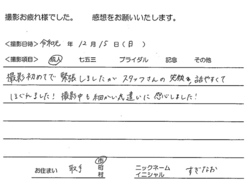 撮影お疲れ様でした。 感想をお願いいたします。
<撮影日時> 令和元 年 12 月 15 日 ( 日 )
<撮影項目> 成人 七五三 ブライダル 記念 その他
撮影初めてで緊張しましたがスタッフさんの笑顔と話やすくて
ほぐれました! 撮影中も細かい気遣いに感心しました!
お住まい 取手 市 町 村 ニックネーム イニシャル すぎなお